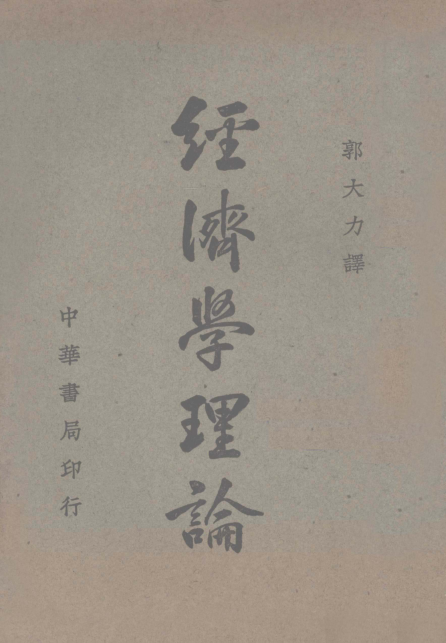 郭大力譯
經濟學理論
中華書局印行